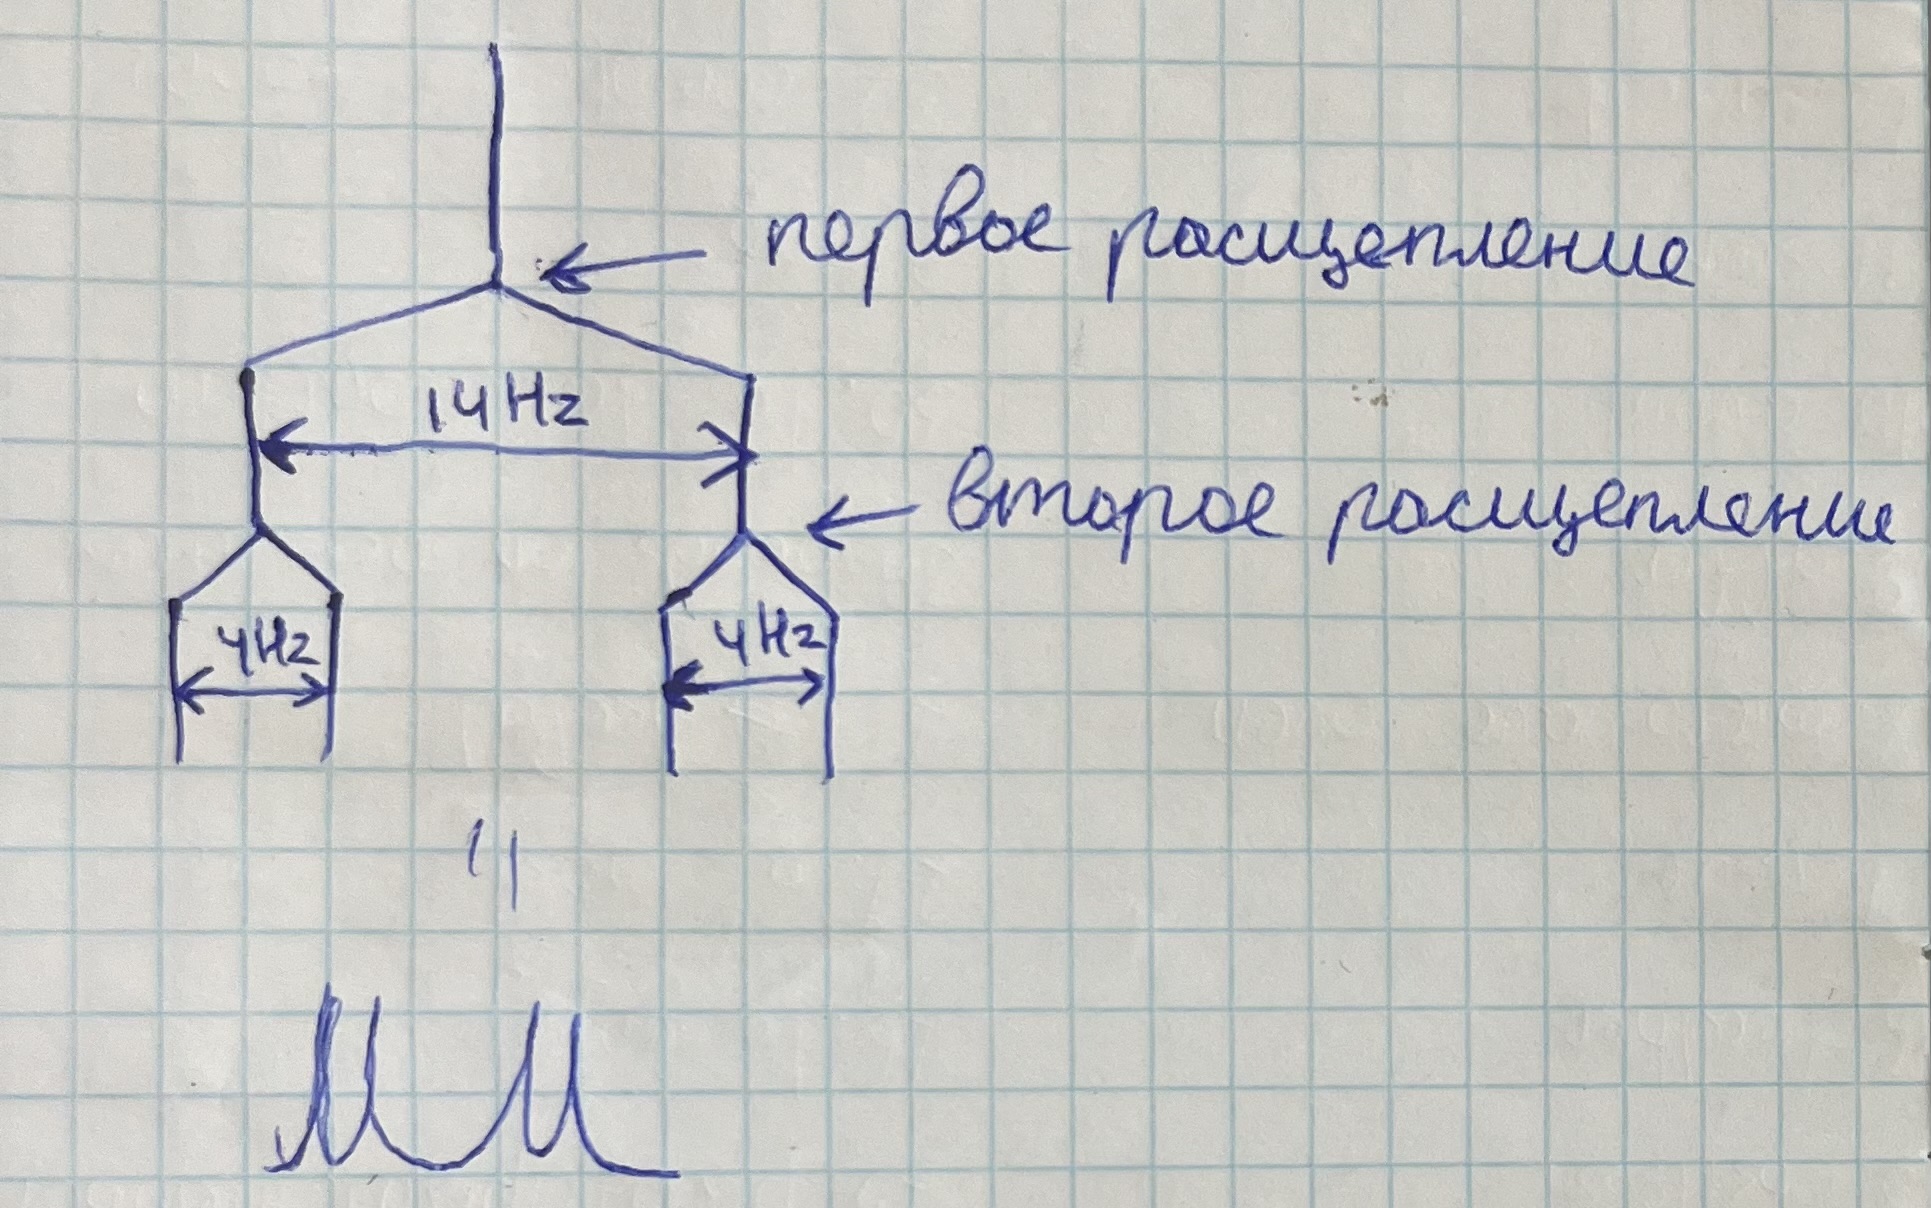 первое расщепление
14Hz
второе расщепление
4Hz 4Hz